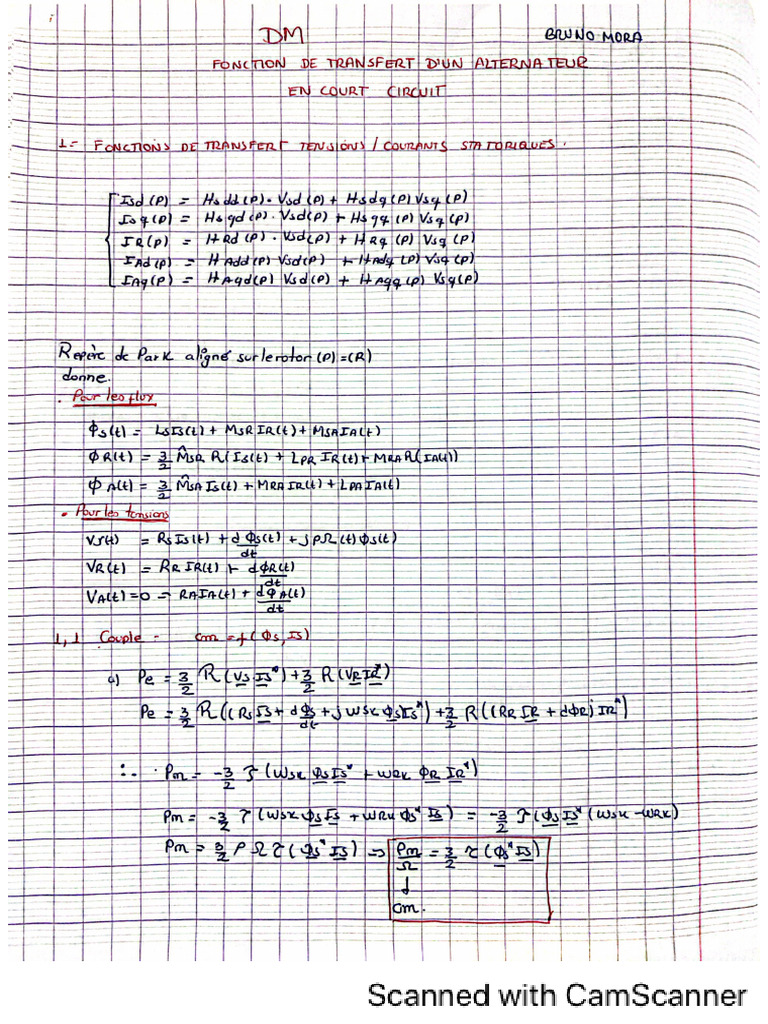 DM
BRUNO MORA
FONCTION DE TRANSFERT D'UN ALTERNATEUR
EN COURT CIRCUIT
1= FONCTIONS DE TRANSFERT TENSIONS / COURANTS STATORIQUES.
Isd(P) = Hsdd(P)·Vsd(P) + Hsdq(P)Vsq(P)
Isq(P) = Hsqd(P)·Vsd(P) + Hsqq(P)Vsq(P)
IR(P) = HRd(P)·Vsd(P) + HRq(P)Vsq(P)
IAd(P) = HAdd(P)Vsd(P) + HAdq(P)Vsq(P)
IAq(P) = HAqd(P)Vsd(P) + HAqq(P)Vsq(P)
Repère de Park aligné sur le rotor (P)=(R)
donne.
. Pour les flux
ϕs(t) = LsIs(t) + MSRIR(t) + MSAIA(t)
ϕR(t) = 3/2 M̂SR R(Is(t) + LPR IR(t) + MRA R(IA(t))
ϕA(t) = 3/2 M̂SA Is(t) + MRA IR(t) + LPA IA(t)
• Pour les tensions
Vs(t) = RsIs(t) + dϕs(t)/dt + jpΩ(t)ϕs(t)
VR(t) = RR IR(t) + dϕR(t)/dt
VA(t)=0 = RAIA(t) + dϕA(t)/dt
1,1 Couple - cm = f(ϕs, Is)
a) Pe = 3/2 R(Vs Is*) + 3/2 R(VR IR*)
Pe = 3/2 R((Rs Is + dϕs/dt + jωsk ϕs)Is*) + 3/2 R((RR IR + dϕR) IR*)
∴ · Pm = -3/2 J(ωsk ϕs Is* + ωRK ϕR IR*)
Pm = -3/2 J(ωsk ϕs Is + ωRK ϕs* Is) = -3/2 J(ϕs Is* (ωsk - ωRK)
Pm = 3/2 P Ω J(ϕs* Is) => Pm/Ω = 3/2 J(ϕs* Is)
↓
cm.
Scanned with CamScanner